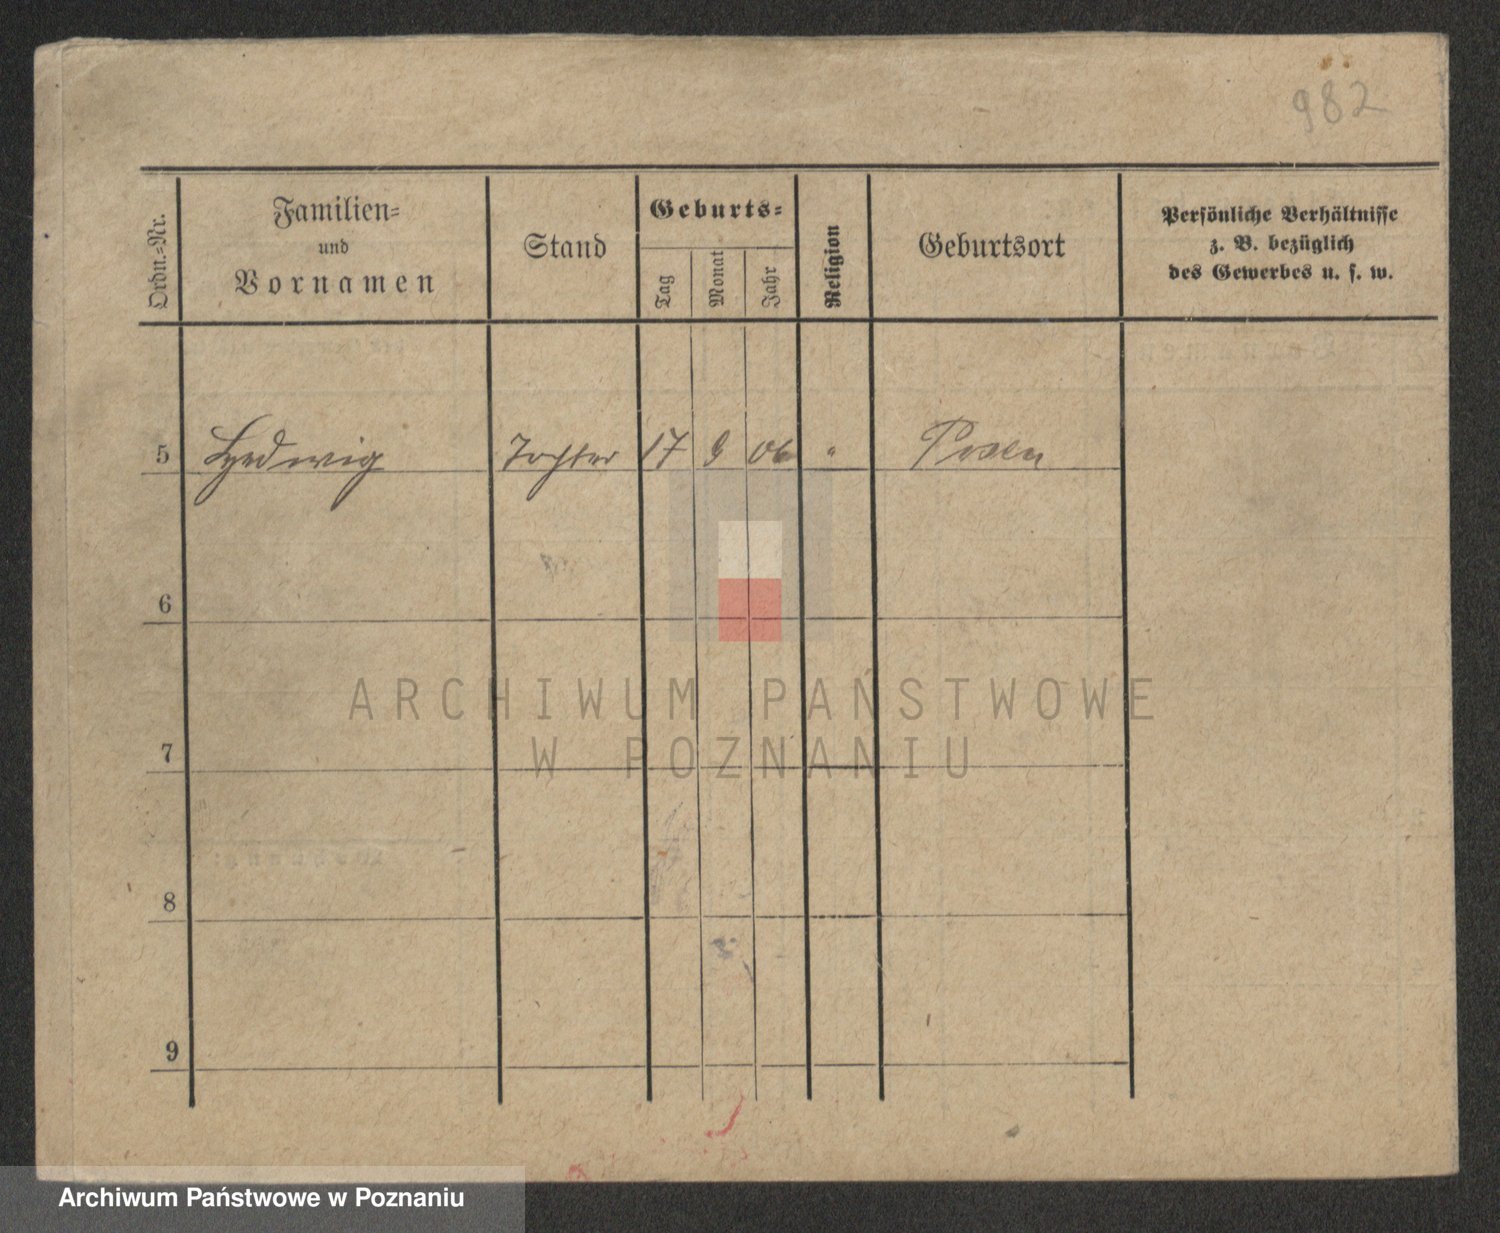 982
Ordn.-Nr.
Familien-
und
Vornamen
Stand
Geburts-
Tag
Monat
Jahr
Religion
Geburtsort
Persönliche Verhältnisse
z. B. bezüglich
des Gewerbes u. s. w.
5 Hedwig Tochter 17 9 06 " Posen
6
7
8
9
ARCHIWUM PAŃSTWOWE
W POZNANIU
Archiwum Państwowe w Poznaniu